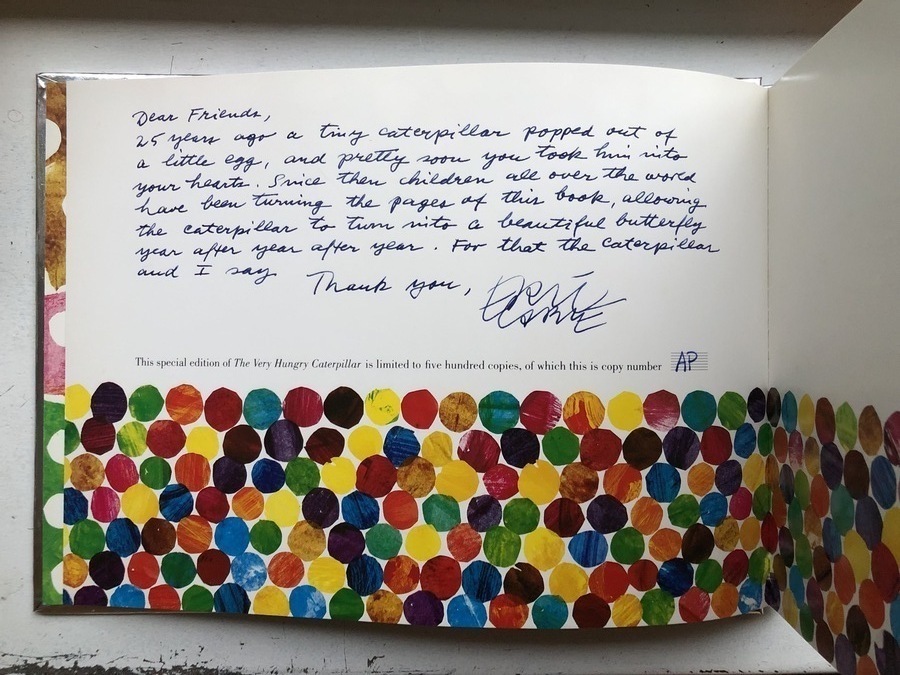 Dear Friends,
25 years ago a tiny caterpillar popped out of
a little egg, and pretty soon you took him into
your hearts. Since then children all over the world
have been turning the pages of this book, allowing
the caterpillar to turn into a beautiful butterfly
year after year after year. For that the caterpillar
and I say
Thank you,
ERIC
CARLE
This special edition of The Very Hungry Caterpillar is limited to five hundred copies, of which this is copy number AP